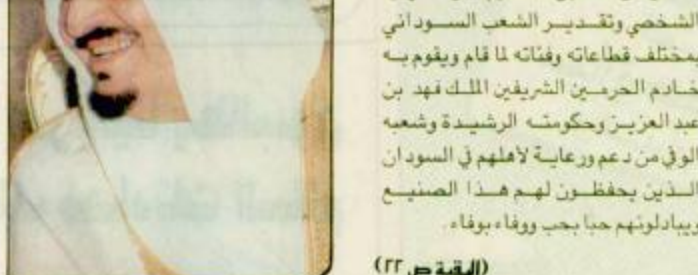 الشخصي وتقدير الشعب السوداني
بمختلف قطاعاته وفئاته لما قام ويقوم به
خادم الحرمين الشريفين الملك فهد بن
عبد العزيز وحكومته الرشيدة وشعبه
الوفي من دعم ورعاية لأهلهم في السودان
الذين يحفظون لهم هذا الصنيع
ويبادلونهم حبا بحب ووفاء بوفاء.
(البقية ص ٢٢)